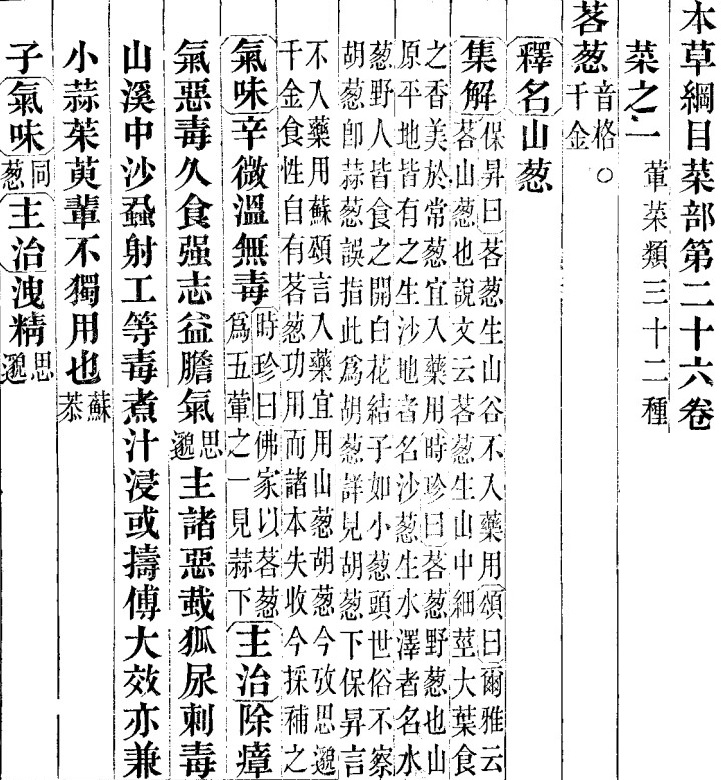 本草綱目菜部第二十六卷
菜之一 葷菜類三十二種
茖葱 音格 千金 ○
釋名山葱
集解 保昇曰茖葱生山谷不入藥用頌曰爾雅云
茖山葱也說文云茖葱生山中細莖大葉食
之香美於常葱宜入藥用時珍曰茖葱野葱也山
原平地皆有之生沙地者名沙葱生水澤者名水
葱野人皆食之開白花結子如小葱頭世俗不察
胡葱卽蒜葱誤指此爲胡葱詳見胡葱下保昇言
不入藥用蘇頌言入藥宜用山葱胡葱今攷思邈
千金食性自有茖葱功用而諸本失收今採補之
氣味辛微溫無毒 時珍曰佛家以茖葱爲五葷之一見蒜下 主治除瘴
氣惡毒久食强志益膽氣 思邈 主諸惡䖧狐尿刺毒
山溪中沙蝨射工等毒煮汁浸或擣傅大效亦兼
小蒜茱萸輩不獨用也 蘇恭
子氣味 同葱 主治洩精 思邈